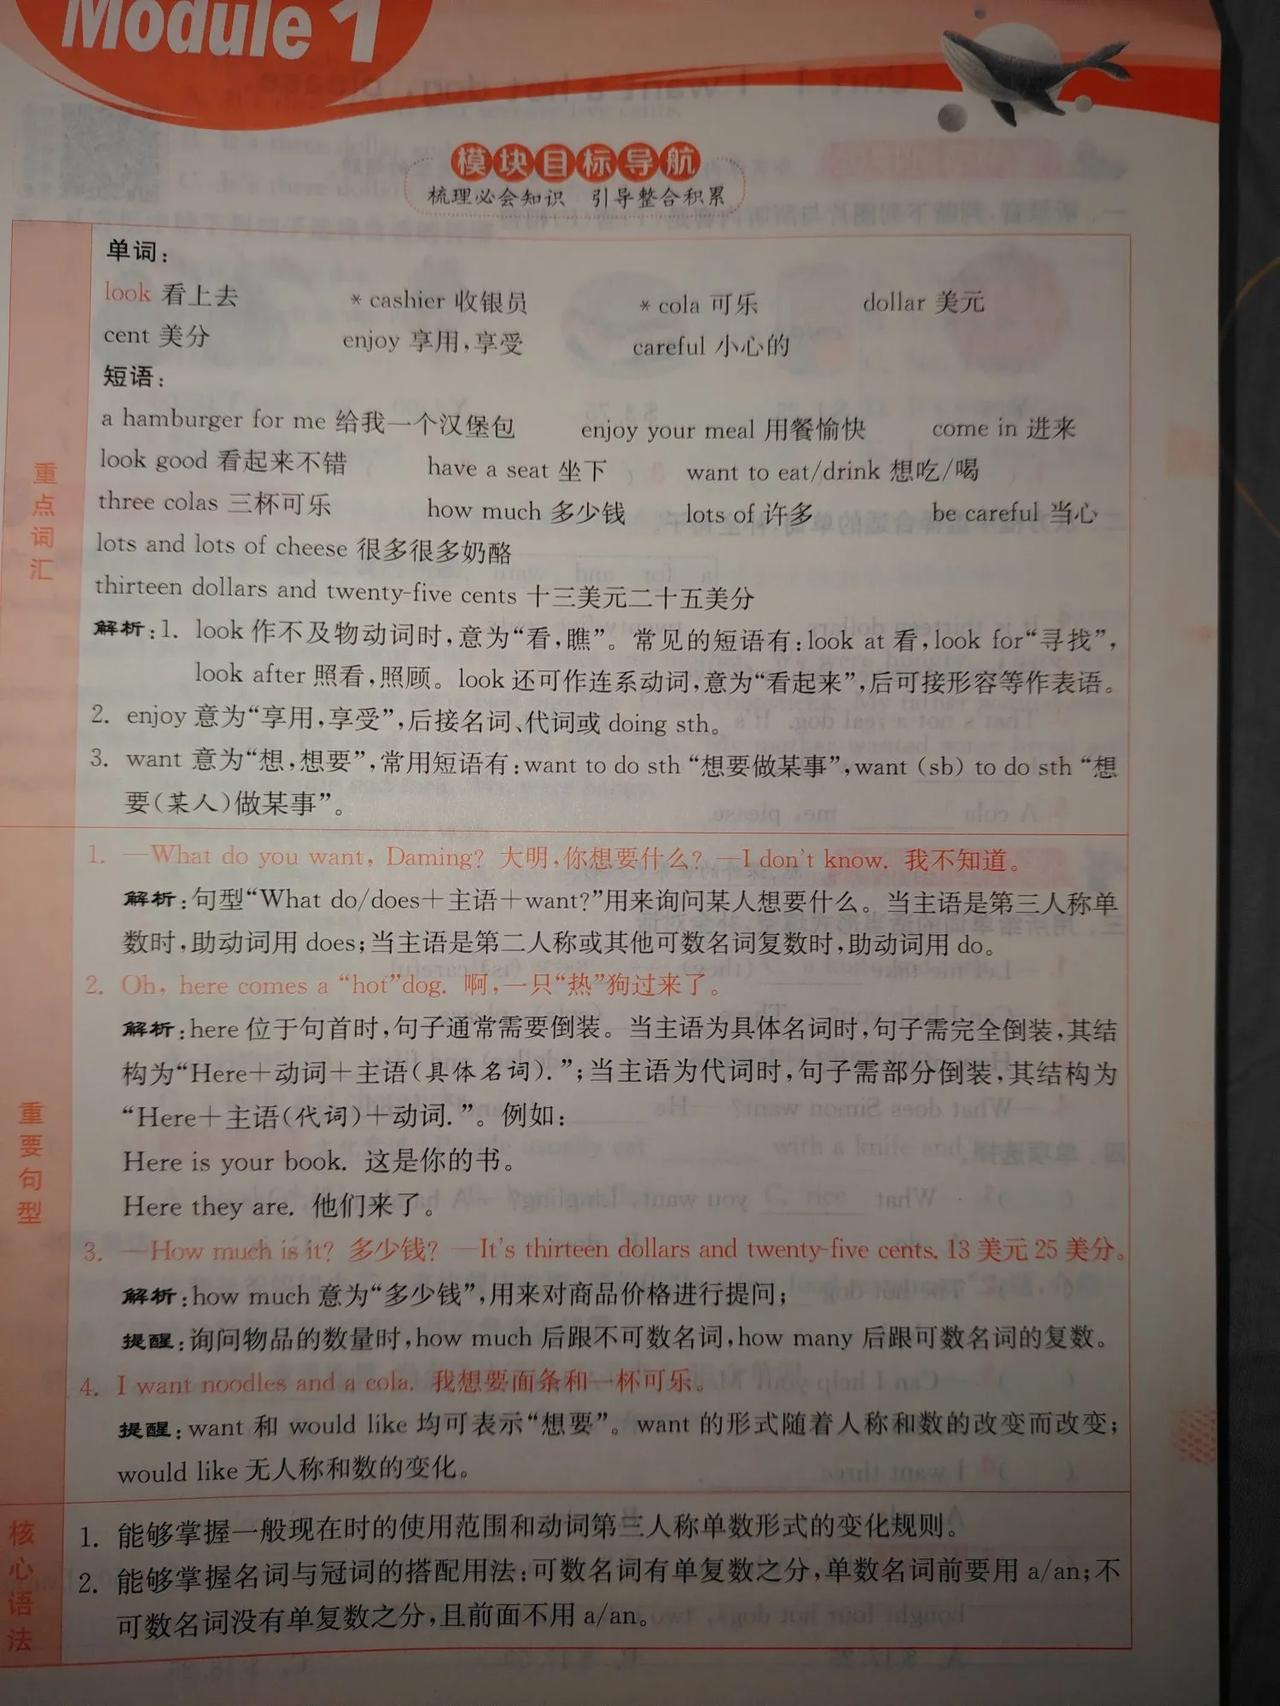 Module 1
模块目标导航
梳理必会知识 引导整合积累
重点词汇
单词：
look 看上去 *cashier 收银员 *cola 可乐 dollar 美元
cent 美分 enjoy 享用，享受 careful 小心的
短语：
a hamburger for me 给我一个汉堡包 enjoy your meal 用餐愉快 come in 进来
look good 看起来不错 have a seat 坐下 want to eat/drink 想吃/喝
three colas 三杯可乐 how much 多少钱 lots of 许多 be careful 当心
lots and lots of cheese 很多很多奶酪
thirteen dollars and twenty-five cents 十三美元二十五美分
解析：1. look 作不及物动词时，意为“看，瞧”。常见的短语有：look at 看，look for“寻找”，
look after 照看，照顾。look 还可作连系动词，意为“看起来”，后可接形容等作表语。
2. enjoy 意为“享用，享受”，后接名词、代词或 doing sth。
3. want 意为“想，想要”，常用短语有：want to do sth “想要做某事”，want (sb) to do sth “想
要（某人）做某事”。
重要句型
1. —What do you want, Daming? 大明，你想要什么？—I don't know. 我不知道。
解析：句型“What do/does＋主语＋want?”用来询问某人想要什么。当主语是第三人称单
数时，助动词用 does；当主语是第二人称或其他可数名词复数时，助动词用 do。
2. Oh, here comes a “hot”dog. 啊，一只“热”狗过来了。
解析：here 位于句首时，句子通常需要倒装。当主语为具体名词时，句子需完全倒装，其结
构为“Here＋动词＋主语(具体名词).”；当主语为代词时，句子需部分倒装，其结构为
“Here＋主语(代词)＋动词.”。例如：
Here is your book. 这是你的书。
Here they are. 他们来了。
3. —How much is it? 多少钱？—It's thirteen dollars and twenty-five cents. 13 美元 25 美分。
解析：how much 意为“多少钱”，用来对商品价格进行提问；
提醒：询问物品的数量时，how much 后跟不可数名词，how many 后跟可数名词的复数。
4. I want noodles and a cola. 我想要面条和一杯可乐。
提醒：want 和 would like 均可表示“想要”。want 的形式随着人称和数的改变而改变；
would like 无人称和数的变化。
核心语法
1. 能够掌握一般现在时的使用范围和动词第三人称单数形式的变化规则。
2. 能够掌握名词与冠词的搭配用法：可数名词有单复数之分，单数名词前要用 a/an；不
可数名词没有单复数之分，且前面不用 a/an。